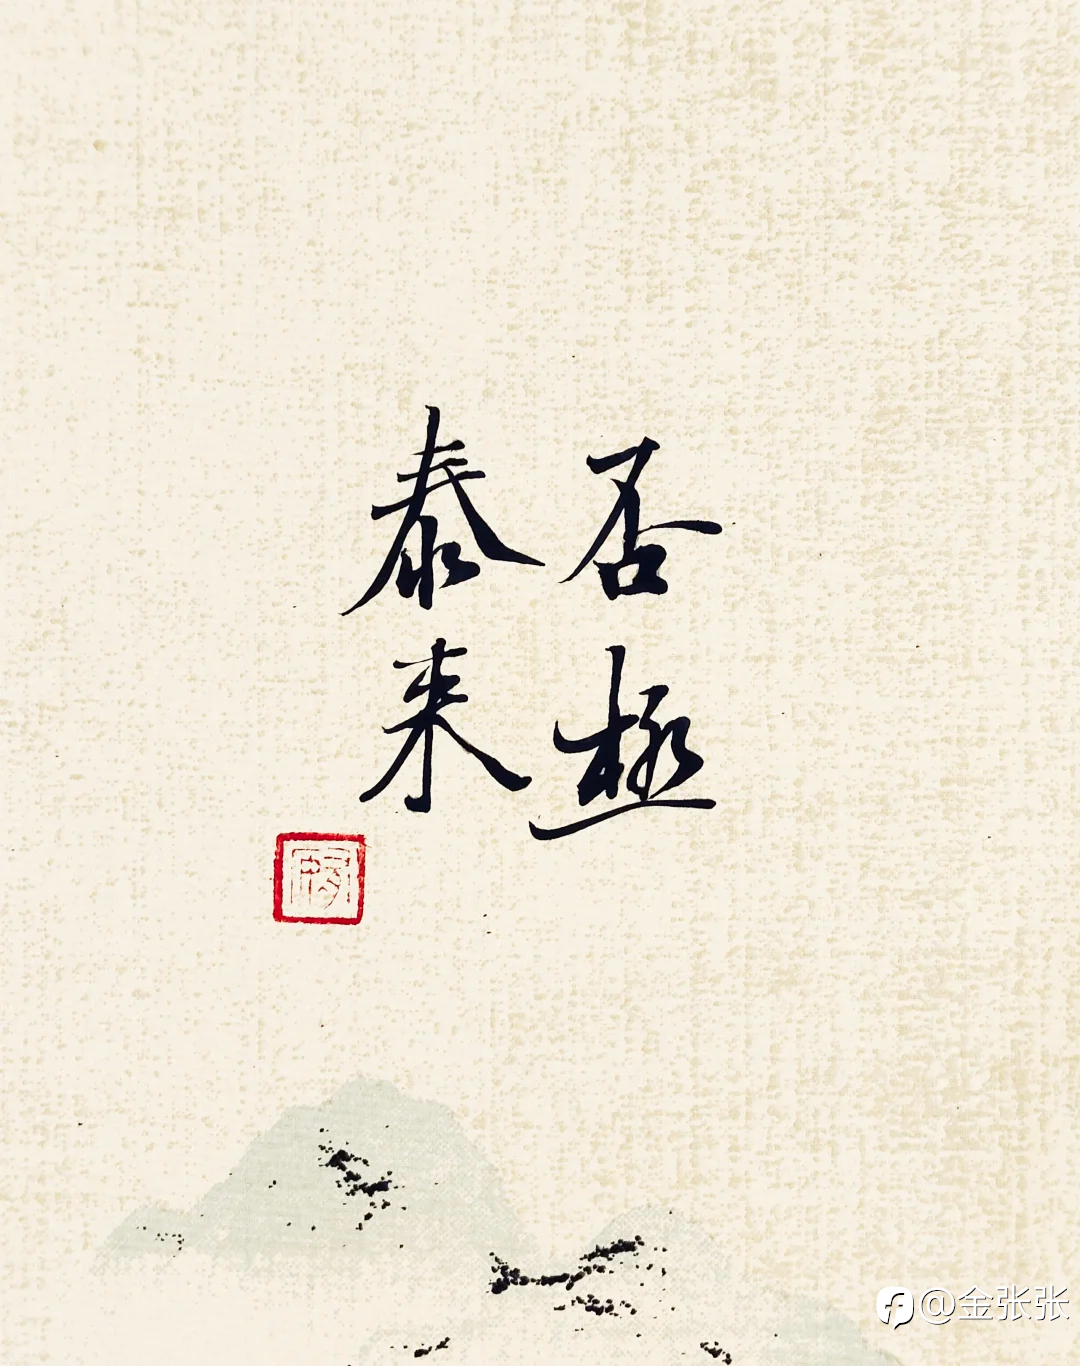 否極
泰来
@金张张